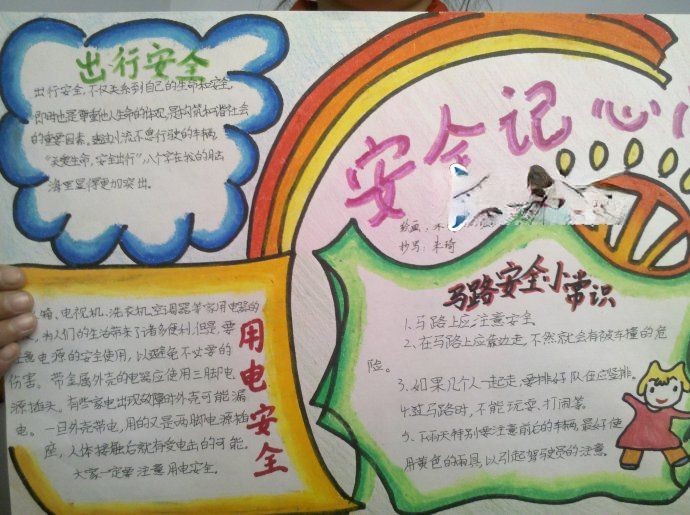 出行安全
出行安全,不仅关系到自己的生命和安全,
即时也是尊重他人生命的体现,是构筑和谐社会
的重要因素,川流不息行驶的车辆,
"关爱生命,安全出行"八个字在我的脑
海里显得更加突出。
安全记心
绘画:朱
抄写:朱琦
箱、电视机、洗衣机、空调器等家用电器的
为人们的生活带来了诸多便利,但是,要
注意电源的安全使用,以避免不必要的
伤害。带金属外壳的电器应使用三脚电
源插头。有些家电出现故障时外壳可能漏
电。一旦外壳带电,用的又是两脚电源插
座,人体接触后就有受电击的可能。
大家一定要注意用电安全。
用电安全
马路安全小常识
1、马路上应注意安全
2、在马路上应靠边走,不然就会有被车撞的危
险。
3、如果几个人一起走,要排好队在应竖排。
4、过马路时,不能玩耍、打闹等。
5、下雨天特别要注意前后的车辆,最好使
用黄色的雨具,以引起驾驶员的注意。